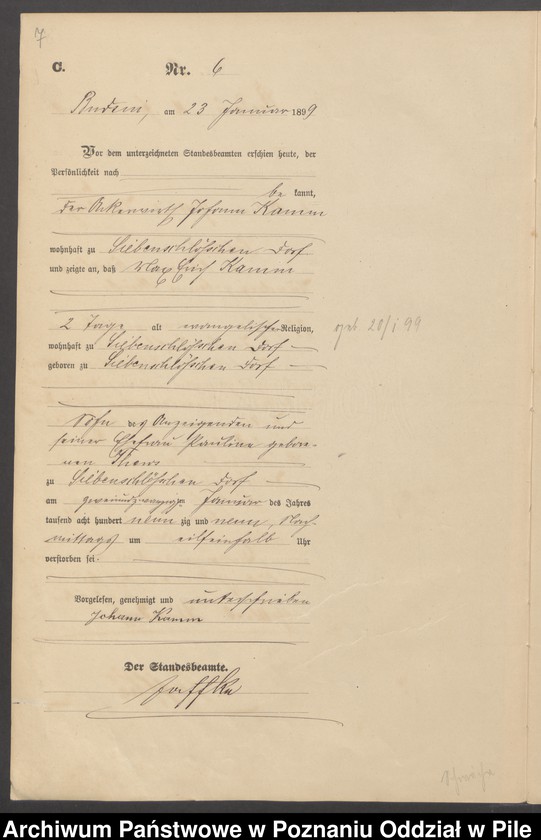 7
C. Nr. 6
am 23 Januar 1899
Vor dem unterzeichneten Standesbeamten erschien heute, der
Persönlichkeit nach
be kannt,
der Johann Kamm
wohnhaft zu Siebenschlößchen Dorf
und zeigte an, daß Max Erich Kamm
2 Tage alt evangelischer Religion,
wohnhaft zu Siebenschlößchen Dorf
geboren zu Siebenschlößchen Dorf
geb 20/1 99
Sohn des Anzeigenden und
seiner Ehefrau Pauline gebore-
nen
zu Siebenschlößchen Dorf
am zweiundzwanzigsten Januar des Jahres
tausend acht hundert neun zig und neun, Nach-
mittags um eilfeinhalb Uhr
verstorben sei.
Vorgelesen, genehmigt und unterschrieben
Johann Kamm
Der Standesbeamte.
Archiwum Państwowe w Poznaniu Oddział w Pile